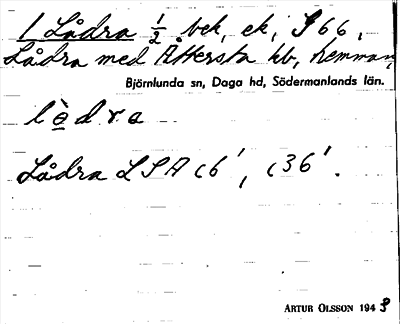 1 Lådra 1/2 bek, ek, S 66,
Lådra med Åttersta hb, hemman,
Björnlunda sn, Daga hd, Södermanlands län.
lèdra
Lådra LSA c6', c36'.
ARTUR OLSSON 1943